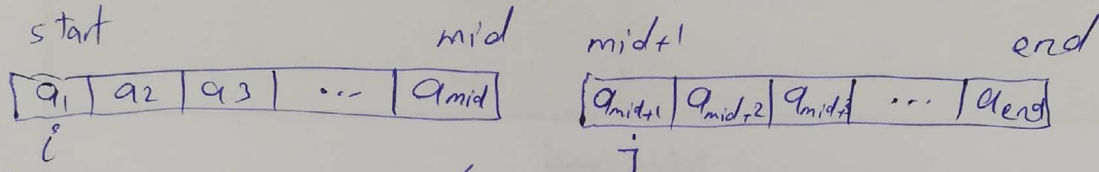 start mid mid+1 end
a1 a2 a3 ... amid amid+1 amid+2 amid+3 ... aend
i j